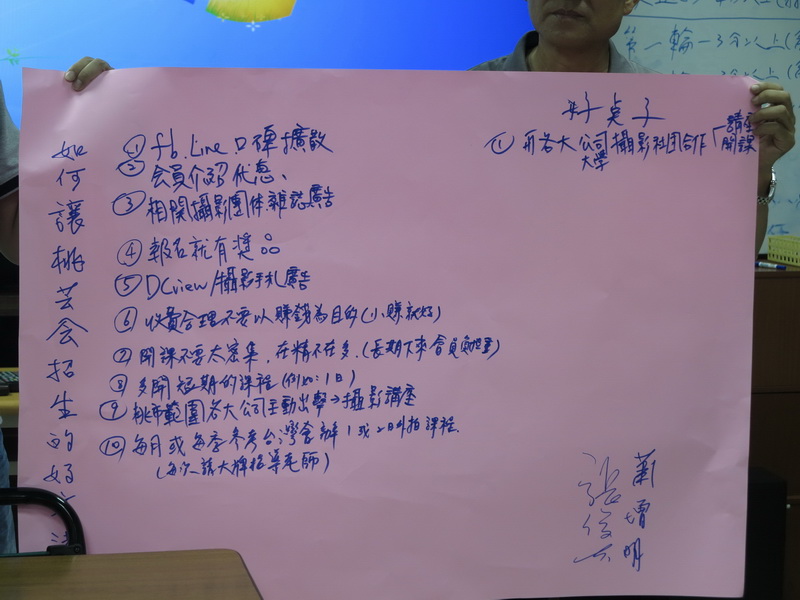 如何讓桃芸会招生的好
① fb. Line 口碑擴散
② 会員介紹优惠、
③ 相関攝影團体雜誌廣告
④ 報名就有獎品
⑤ DCview/攝影手札廣告
⑥ 收費合理不要以賺錢為目的(小賺就好)
⑦ 開課不要太密集,在精不在多.(長期下來會員
⑧ 多開短期的課程(例如:1日)
⑨ 桃市範圍各大公司主動出擊→攝影講座
⑩ 每月或每季參考台灣會辦1或2日外拍課程.
(每次請大牌指導老師)
好桌子
① 再各大公司攝影社团合作
大學
講座
開課
蕭增明
張俊
第一輪一3分以上